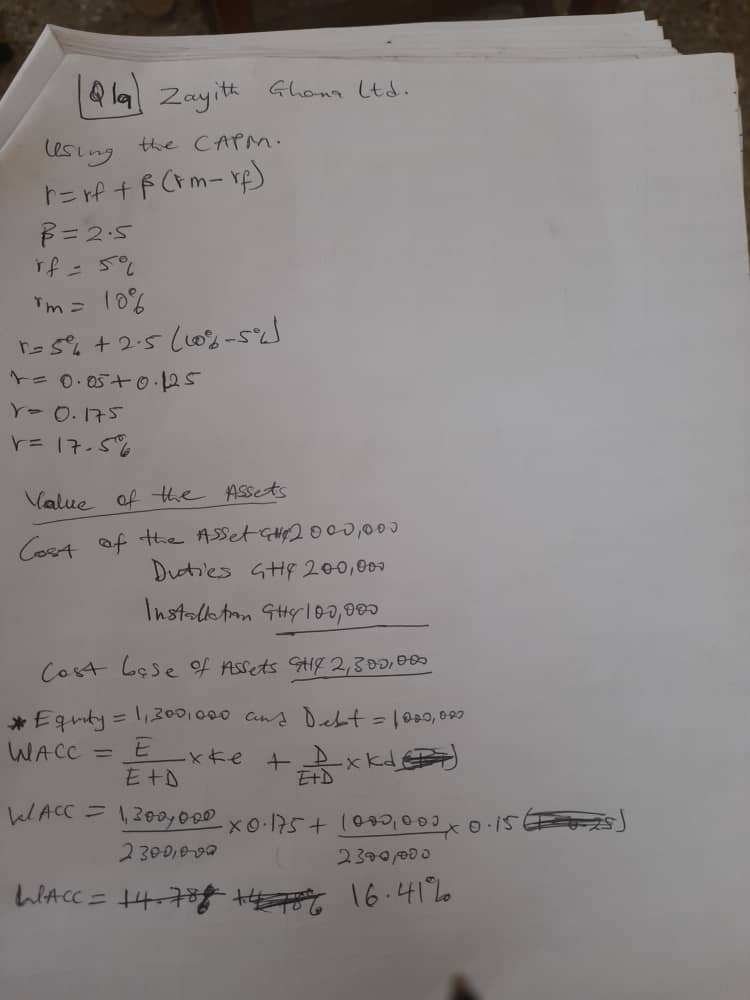 Q1a Zayith Ghana Ltd.
Using the CAPM.
r = rf + β(rm - rf)
β = 2.5
rf = 5%
rm = 10%
r = 5% + 2.5 (10% - 5%)
r = 0.05 + 0.125
r = 0.175
r = 17.5%
Value of the Assets
Cost of the Asset GH¢2000,000
Duties GH¢ 200,000
Installation GH¢100,000
Cost base of Assets GH¢ 2,300,000
* Equity = 1,300,000 and Debt = 1000,000
WACC = E/E+D × Ke + D/E+D × Kd
WACC = 1,300,000/2300,000 × 0.175 + 1000,000/2300,000 × 0.15
WACC = 16.41%